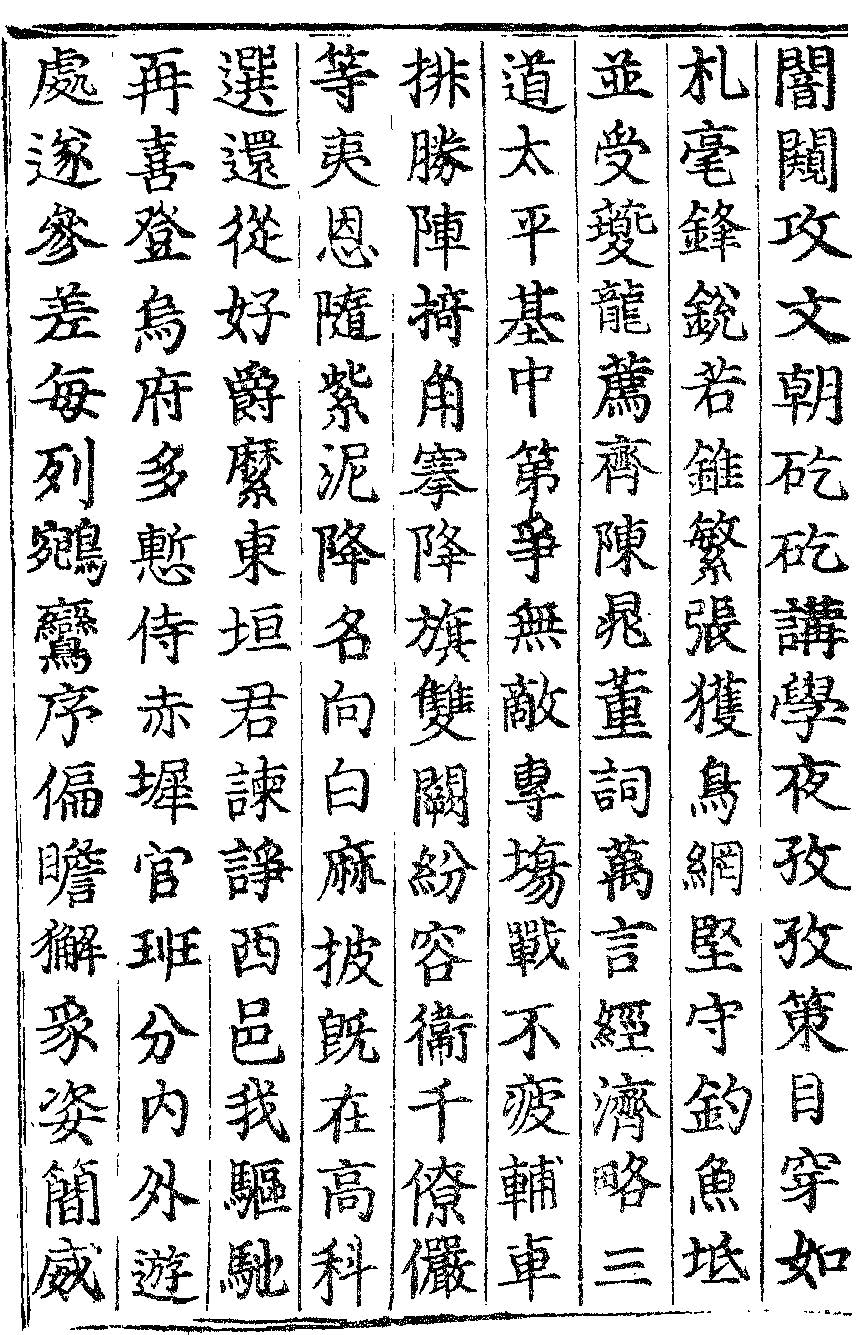 闇闃攻文朝矻矻講學夜孜孜策目穿如
札毫鋒銳若錐繁張獲鳥網堅守釣魚坻
並受夔龍薦齊陳晁董詞萬言經濟略三
道太平基中第爭無敵專場戰不疲輔車
排勝陣掎角搴降旗雙闕紛容衛千僚儼
等夷恩隨紫泥降名向白麻披旣在高科
選還從好爵縻東垣君諫諍西邑我驅馳
再喜登烏府多慙侍赤墀官班分內外遊
處遂參差每列鵷鸞序偏瞻獬豸姿簡威